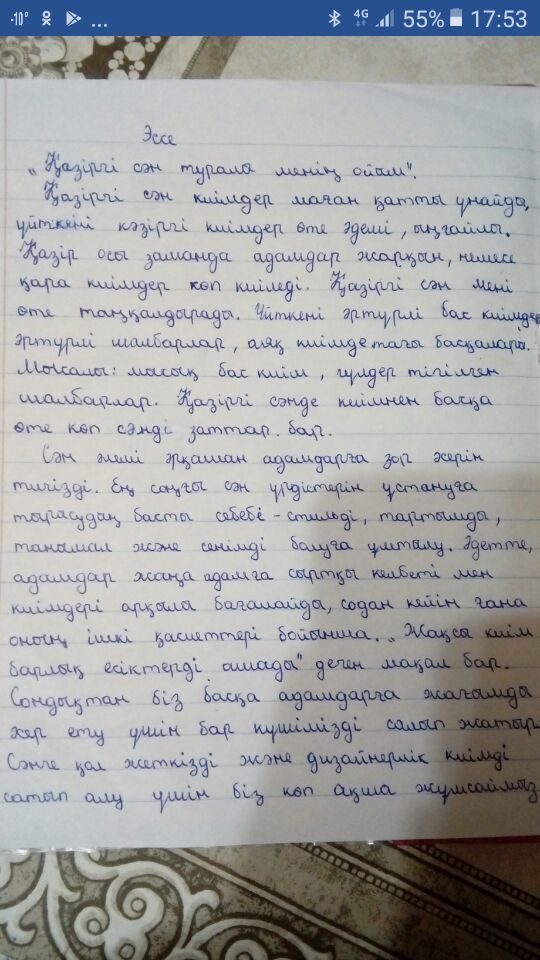 -10° 4G 55% 17:53
Эссе
„Қазіргі сән туралы менің ойым".
Қазіргі сән киімдер маған қатты ұнайды,
үйткені кәзіргі киімдер өте әдемі, ыңғайлы.
Қазір осы заманда адамдар жарқын, немесе
қара киімдер көп киіледі. Қазіргі сән мені
өте таңқалдырады. Үйткені әртүрлі бас киімдер
әртүрлі шалбарлар, аяқ киімде тағы басқалары.
Мысалы: мысық бас киім, гүлдер тігілген
шалбарлар. Қазіргі сәнде киімнен басқа
өте көп сәнді заттар бар.
Сән әлемі әрқашан адамдарға зор әсерін
тигізді. Ең соңғы сән үрдістерін ұстануға
тырысудың басты себебі - стильді, тартымды,
танымал және сенімді болуға ұмтылу. Әдетте,
адамдар жаңа адамға сыртқы келбеті мен
киімдері арқылы бағалайды, содан кейін ғана
оның ішкі қасиеттері бойынша. „Жақсы киім
барлық есіктерді ашады" деген мақал бар.
Сондықтан біз басқа адамдарға жағымды
әсер ету үшін бар күшімізді салып жатыр
Сәнге қол жеткізді және дизайнерлік киімді
сатып алу үшін біз көп ақша жұмсаймыз